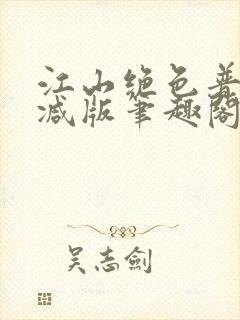 江山绝色普
减版笔趣阁
吴志剑